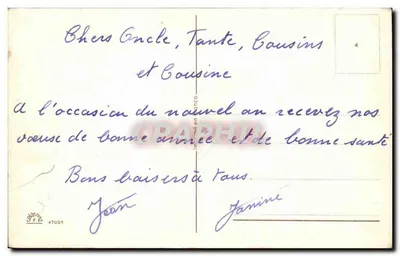 Chers Oncle, Tante, Cousins
et Cousine
A l'occasion du nouvel an recevez nos
vœuse de bonne année et de bonne santé
Bons baisers à tous.
Jean Janine
4